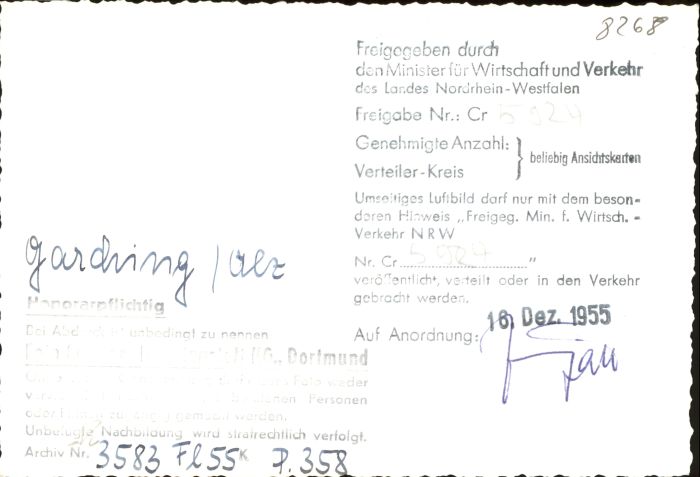 8268
Freigegeben durch
den Minister für Wirtschaft und Verkehr
des Landes Nordrhein-Westfalen
Freigabe Nr.: Cr 5924
Genehmigte Anzahl:
Verteiler-Kreis
beliebig Ansichtskarten
Umseitiges Luftbild darf nur mit dem beson-
deren Hinweis „Freigeg. Min. f. Wirtsch. -
Verkehr NRW
Nr. Cr 5924"
veröffentlicht, verteilt oder in den Verkehr
gebracht werden.
16. Dez. 1955
Auf Anordnung:
Garching / Alz
Honorarpflichtig
unbedingt zu nennen
Dortmund
Foto weder
Personen
werden.
Unbefugte Nachbildung wird strafrechtlich verfolgt.
Archiv Nr. 3583 Fl 55 K P. 358